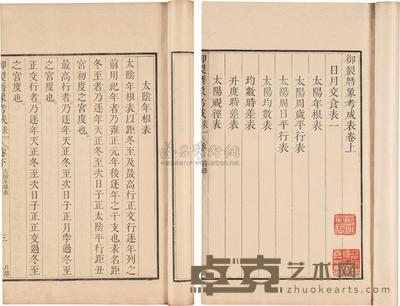 御製曆象考成表卷上
日月交食表一
太陽年根表
太陽周歲平行表
太陽周日平行表
太陽均數表
均數時差表
升度時差表
太陽視徑表
御製曆象考成表
太陰年根表
太陰年根表以距冬至及最高行正交行逐年列之
前用紀年者乃雍正元年後逐年之干支也表名距
冬至者乃逐年天正冬至次日子正太陰平行距丑
宮初度之宮度也
最高行者乃逐年天正冬至次日子正月孛過冬至
之宮度也
正交行者乃逐年天正冬至次日子正正交過冬至
之宮度也
御製曆象考成表
卷下
三
卓克艺术网